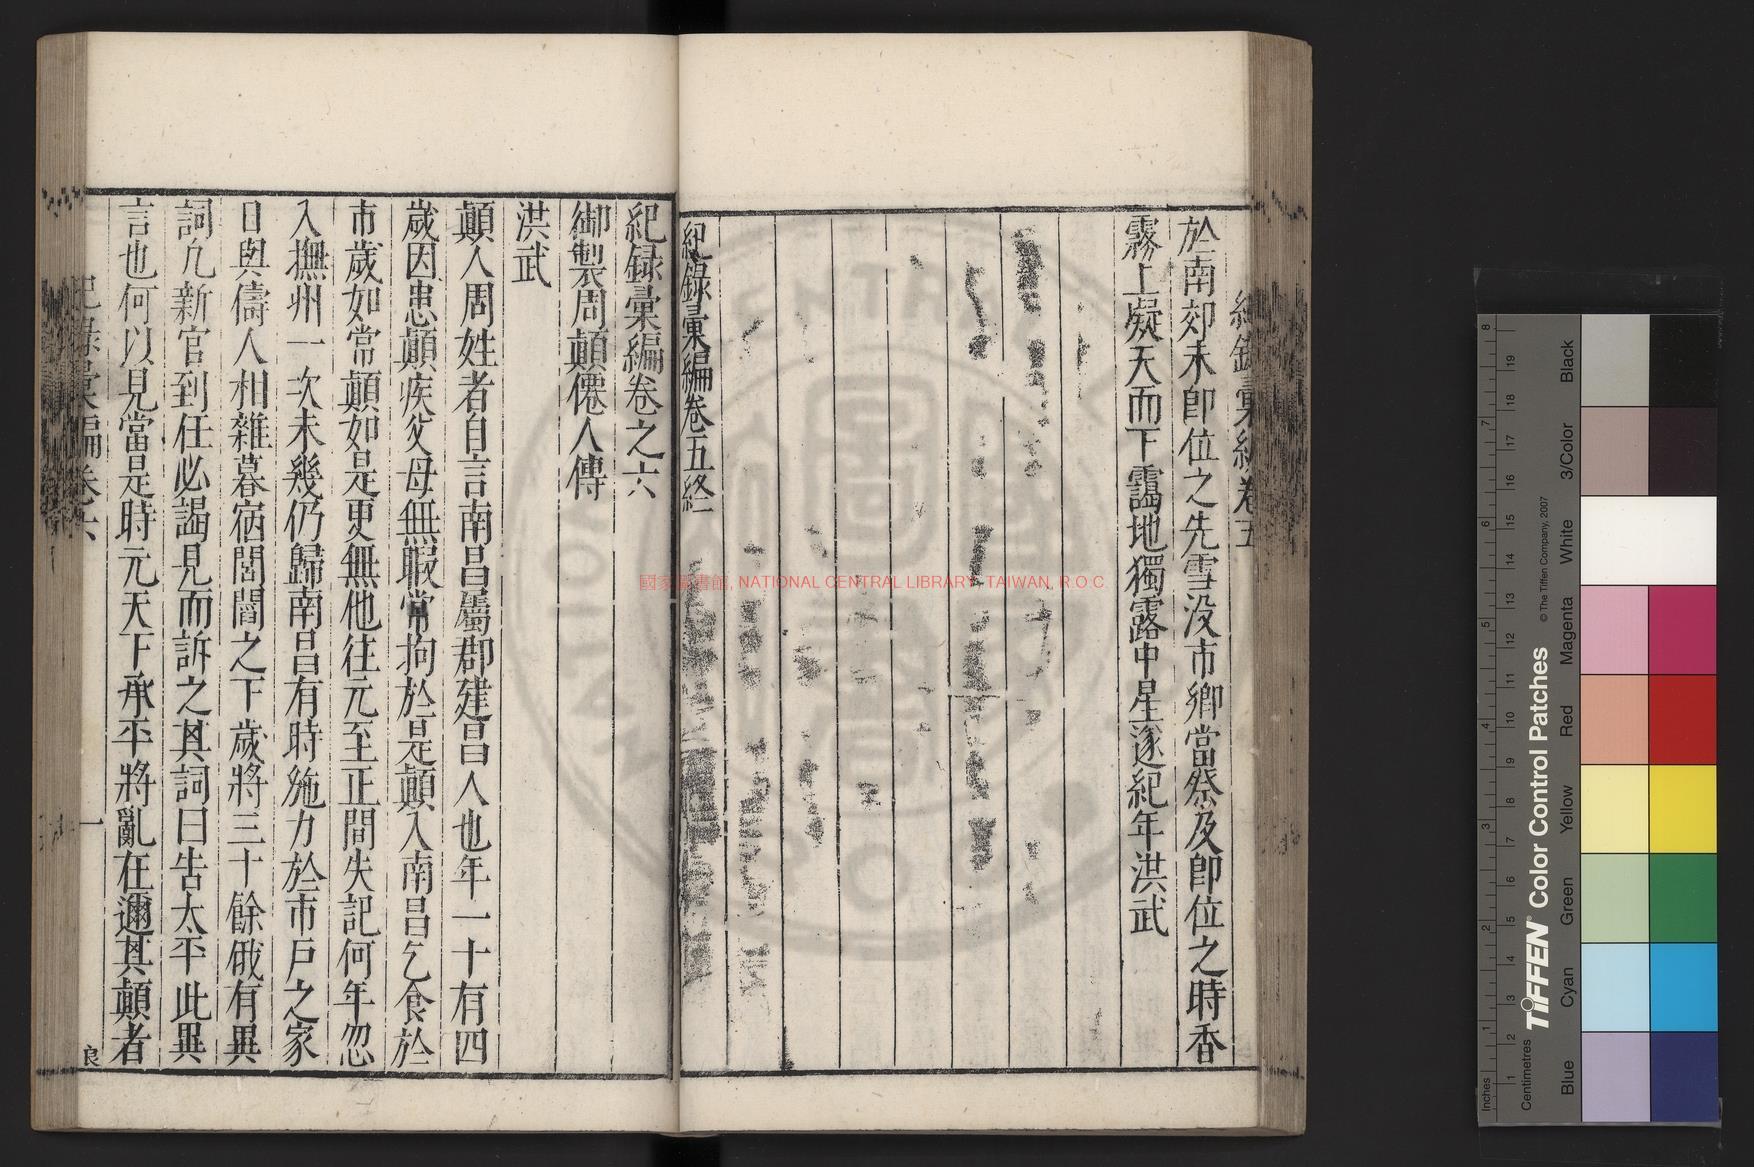 紀錄彙編卷五
於南郊未卽位之先雪没市鄉當祭及卽位之時香
霧上凝天而下靄地獨露中星逐紀年洪武
紀錄彙編卷五終
紀録彙編卷之六
御製周顛僊人傳
洪武
顛人周姓者自言南昌屬郡建昌人也年一十有四
歲因患顛疾父母無暇常拘於是顛入南昌乞食於
市歲如常顛如是更無他往元至正間失記何年忽
入撫州一次未幾仍歸南昌有時施力於市戶之家
日與儔人相雜暮宿閭閻之下歲將三十餘俄有異
詞凢新官到任必謁見而訴之其詞曰告太平此異
言也何以見當是時元天下承平將亂在邇其顛者
紀錄彙編卷之六
一
國家圖書館, NATIONAL CENTRAL LIBRARY, TAIWAN, R.O.C
Inches
Centimetres
TIFFEN® Color Control Patches
© The Tiffen Company, 2007
Blue
Cyan
Green
Yellow
Red
Magenta
White
3/Color
Black